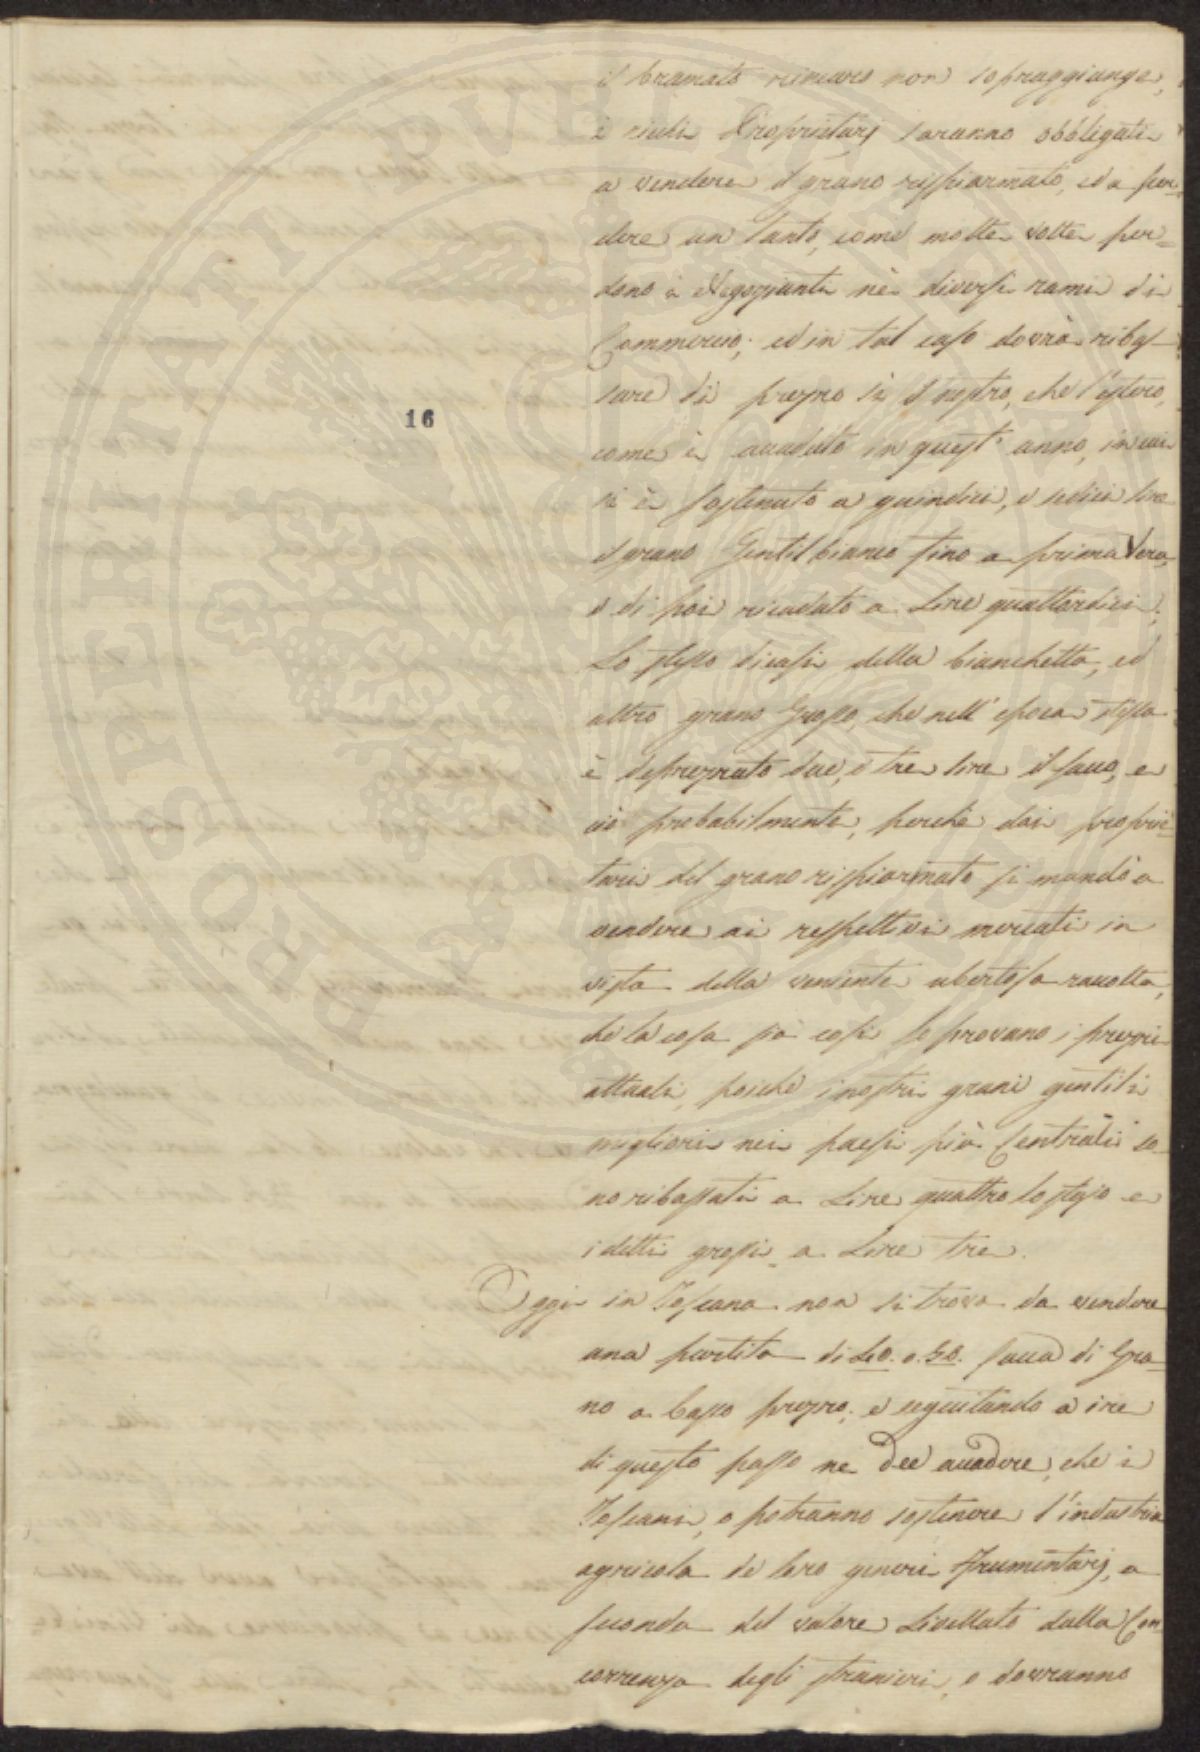 il bramato rincaro non sopraggiunge,
i ricchi Proprietarj saranno obbligati
a vendere il grano risparmiato, ed a per=
dere un tanto, come molte volte per=
dono i Negozianti nè diversi rami di
Commercio; ed in tal caso dovrà ribas=
sare di prezzo sì il nostro, che l'estero,
come è accaduto in quest' anno, in cui
si è sostenuto a quindici, e sedici lire
il grano Gentil bianco fino a prima Vera,
e di poi ricaduto a Lire quattordici;
Lo stesso dicasi della bianchetta, ed
altro grano Grosso, che nell' epoca stessa
è deprezzato due, o tre lire il sacco, e
ciò probabilmente, perchè dai proprie=
tarii del grano risparmiato si mandò a
vendere ai respettivi mercati in
vista della veniente ubertosa raccolta,
che la cosa sia così lo provano i prezzi
attuali, poichè i nostri grani gentili
migliori nei paesi più Centrali so=
no ribassati a Lire quattro lo stajo e
i detti grossi a Lire tre.
Oggi in Toscana non si trova da vendere
una partita di 40. o 50. sacca di Gra=
no a basso prezzo; e seguitando a ire
di questo passo ne dee accadere, che i
Toscani, o potranno sostenere l'industria
agricola de loro generi frumentarj, a
seconda del valore Livellato dalla Con=
correnza degli stranieri, o dovranno
16
PROSPERITATI PVBLICAE